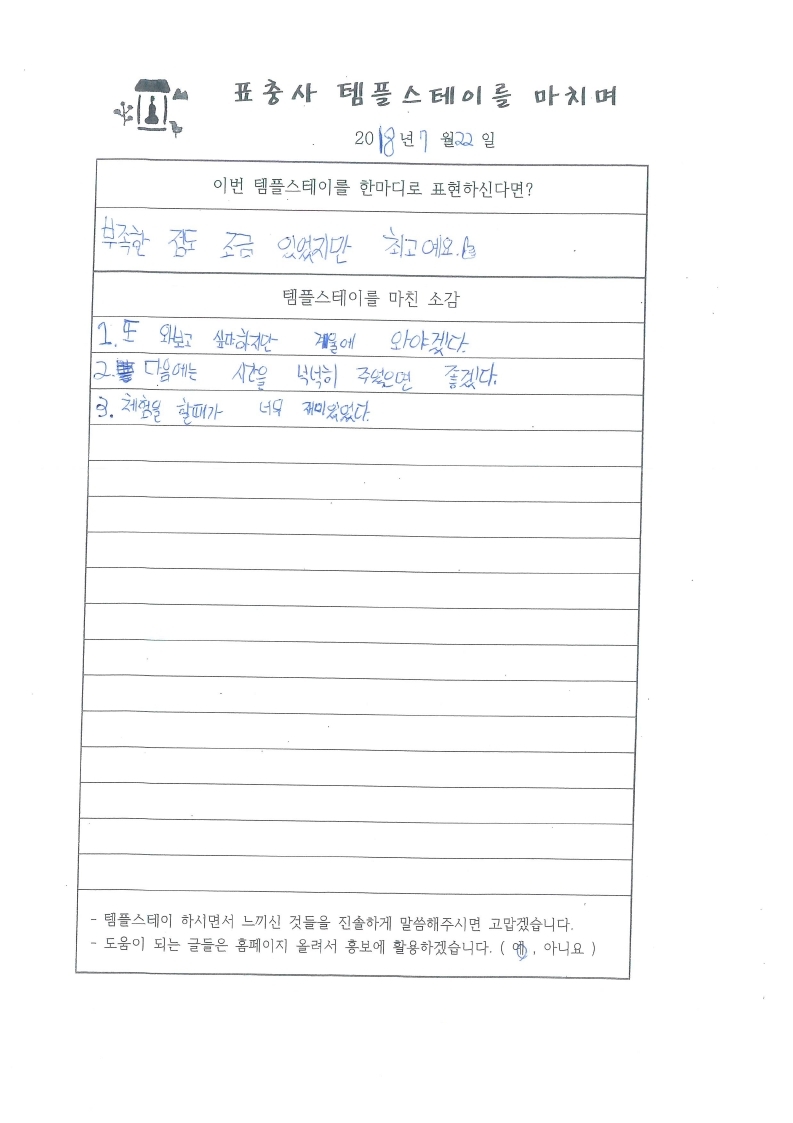 표충사 템플스테이를 마치며
2018년 7월 22일
이번 템플스테이를 한마디로 표현하신다면?
부족한 점도 조금 있었지만 최고예요.
템플스테이를 마친 소감
1. 또 와보고 싶다하지만 겨울에 와야겠다.
2. 다음에는 시간을 넉넉히 주셨으면 좋겠다.
3. 체험을 할때가 너무 재미있었다.
- 템플스테이 하시면서 느끼신 것들을 진솔하게 말씀해주시면 고맙겠습니다.
- 도움이 되는 글들은 홈페이지 올려서 홍보에 활용하겠습니다. ( 예 , 아니요 )